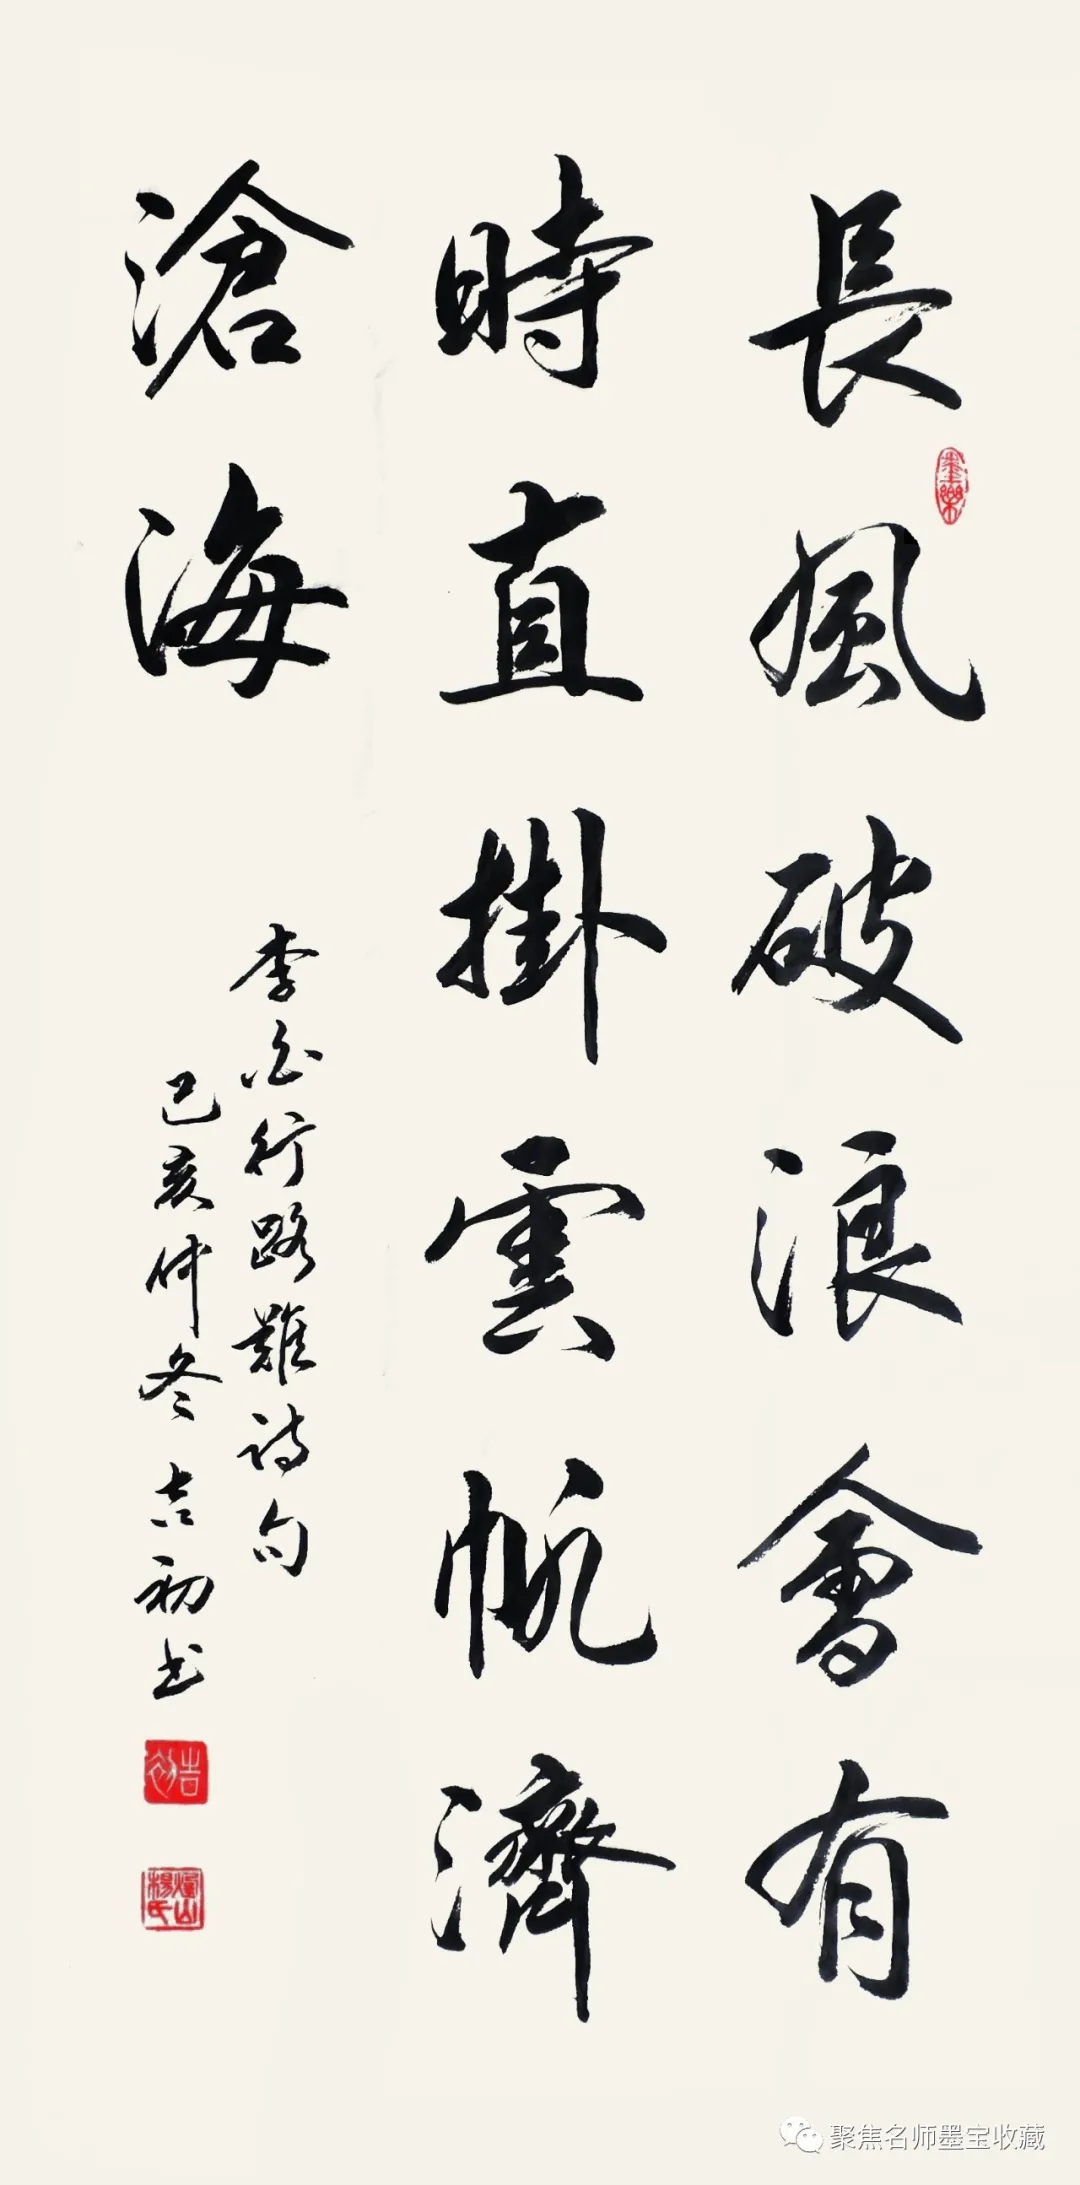 長風破浪會有
時直掛雲帆濟
滄海
李白行路難诗句
己亥仲冬吉初书
吉初
楊氏
聚焦名师墨宝收藏